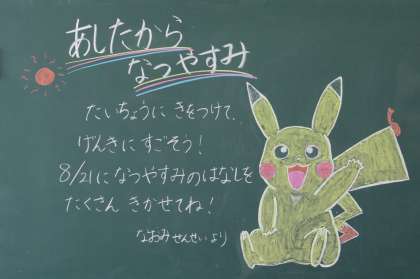 あしたから
なつやすみ
たいちょうに きをつけて、
げんきに すごそう!
8/21に なつやすみのはなしを
たくさん きかせてね!
なおみ せんせい より